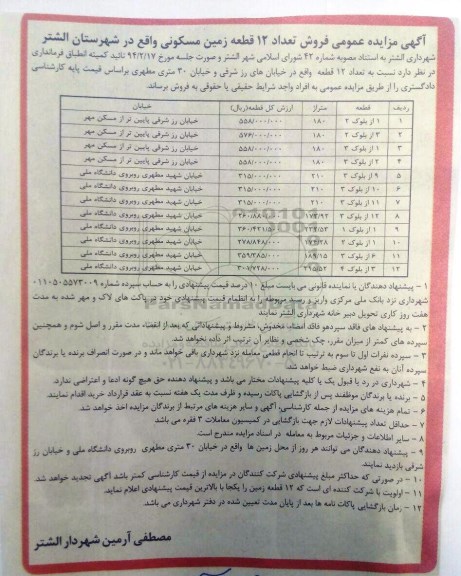 آگهی مزایده عمومی فروش تعداد ۱۲ قطعه زمین مسکونی واقع در شهرستان الشتر
شهرداری الشتر به استناد مصوبه شماره ۴۲ شورای اسلامی شهر الشتر و صورت جلسه مورخ ۹۴/۲/۱۷ تائید کمیته انطباق فرمانداری
در نظر دارد نسبت به تعداد ۱۲ قطعه واقع در خیابان های رز شرقی و خیابان ۳۰ متری مطهری براساس قیمت پایه کارشناسی
دادگستری را از طریق مزایده عمومی به افراد واجد شرایط حقیقی یا حقوقی به فروش برساند.
ردیف قطعه متراژ ارزش کل قطعه(ریال) خیابان
۱ ۱ از بلوک ۲ ۱۸۰ ۵۵۸/۰۰۰/۰۰۰ خیابان رز شرقی پایین تر از مسکن مهر
۲ ۳ از بلوک ۲ ۱۸۰ ۵۷۶/۰۰۰/۰۰۰ خیابان رز شرقی پایین تر از مسکن مهر
۳ ۱ از بلوک ۳ ۱۸۰ ۵۵۸/۰۰۰/۰۰۰ خیابان رز شرقی پایین تر از مسکن مهر
۴ ۲ از بلوک ۳ ۱۸۰ ۵۵۸/۰۰۰/۰۰۰ خیابان رز شرقی پایین تر از مسکن مهر
۵ ۹ از بلوک ۳ ۲۱۰ ۳۱۵/۰۰۰/۰۰۰ خیابان شهید مطهری روبروی دانشگاه ملی
۶ ۱۰ از بلوک ۳ ۲۱۰ ۳۱۵/۰۰۰/۰۰۰ خیابان شهید مطهری روبروی دانشگاه ملی
۷ ۱۱ از بلوک ۳ ۲۱۰ ۳۱۵/۰۰۰/۰۰۰ خیابان شهید مطهری روبروی دانشگاه ملی
۸ ۱۲ از بلوک ۳ ۱۷۳/۹۲ خیابان شهید مطهری روبروی دانشگاه ملی
۹ ۱ از بلوک ۱ خیابان شهید مطهری روبروی دانشگاه ملی
۱۰ ۱ از بلوک ۲ ۱۷۴/۲۸ ۲۷۸/۸۴۸/۰۰۰ خیابان شهید مطهری روبروی دانشگاه ملی
۱۱ ۶ از بلوک ۳ ۱۸۹/۱۵ خیابان شهید مطهری روبروی دانشگاه ملی
۱۲ ۳ از بلوک ۴ خیابان شهید مطهری روبروی دانشگاه ملی
۱ - پیشنهاد دهندگان یا نماینده قانونی می بایست مبلغ ۱۰ درصد قیمت پیشنهادی را به حساب سپرده شماره ۰۱۱۰۵۰۵۵۷۳۰۰۹
شهرداری نزد بانک ملی مرکزی واریز و رسید مربوطه را به انظمام قیمت پیشنهادی خود در پاکت های لاک و مهر شده به مدت
هفت روز کاری تحویل دبیر خانه شهرداری الشتر نمایند
۲ - به پیشنهاد های فاقد سپردهو فاقد امضاء، مخدوش، مشروط و پیشنهاداتی که بعد از انقضاء مدت مقرر و اصل شوم و همچنین
سپرده های کمتر از میزان مقرر، چک شخصی و نظایر آن ترتیب اثر داده نخواهد شد
۳ - سپرده نفرات اول تا سوم به ترتیب تا انجام قطعی معامله نزد شهرداری باقی خواهد ماند و در صورت انصراف برنده یا برندگان
سپرده آنان به نفع شهرداری ضبط خواهد شد
۴ - شهرداری در رد یا قبول یک یا کلیه پیشنهادات مختار می باشد و پیشنهاد دهنده حق هیچ گونه ادعا و اعتراضی ندارد.
۵ - برنده یا برندگان موظفند پس از بازگشایی پاکات رسیده و ظرف مدت یک هفته نسبت به عقد قرارداد خرید اقدام نمایند.
۶ - تمام هزینه های مزایده از جمله کارشناسی، آگهی و سایر هزینه های مرتبط از برندگان مزایده اخذ خواهد شد.
۷ - حداقل تعداد پیشنهادات لازم جهت بازگشایی در کمیسیون معاملات ۳ فقره می باشد
۸ - سایر اطلاعات و جزئیات مربوط به معامله در اسناد مزایده مندرج است.
۹ - پیشنهاد دهندگان می توانند هر روز از محل زمین ها واقع در خیابان ۳۰ متری مطهری روبروی دانشگاه ملی و خیابان رز
شرقی بازدید نمایند.
۱۰ - در صورتی که حداکثر مبلغ پیشنهادی شرکت کنندگان در مزایده از قیمت کارشناسی کمتر باشد آگهی تجدید خواهد شد.
۱۱ - اولویت با شرکت کننده ای است که ۱۲ قطعه زمین را یکجا با بالاترین قیمت پیشنهادی اعلام نماید.
۱۲ - زمان بازگشایی پاکات نامه ها بعد از پایان مدت تعیین شده در دفتر شهرداری می باشد.
مصطفی آرمین شهردار الشتر